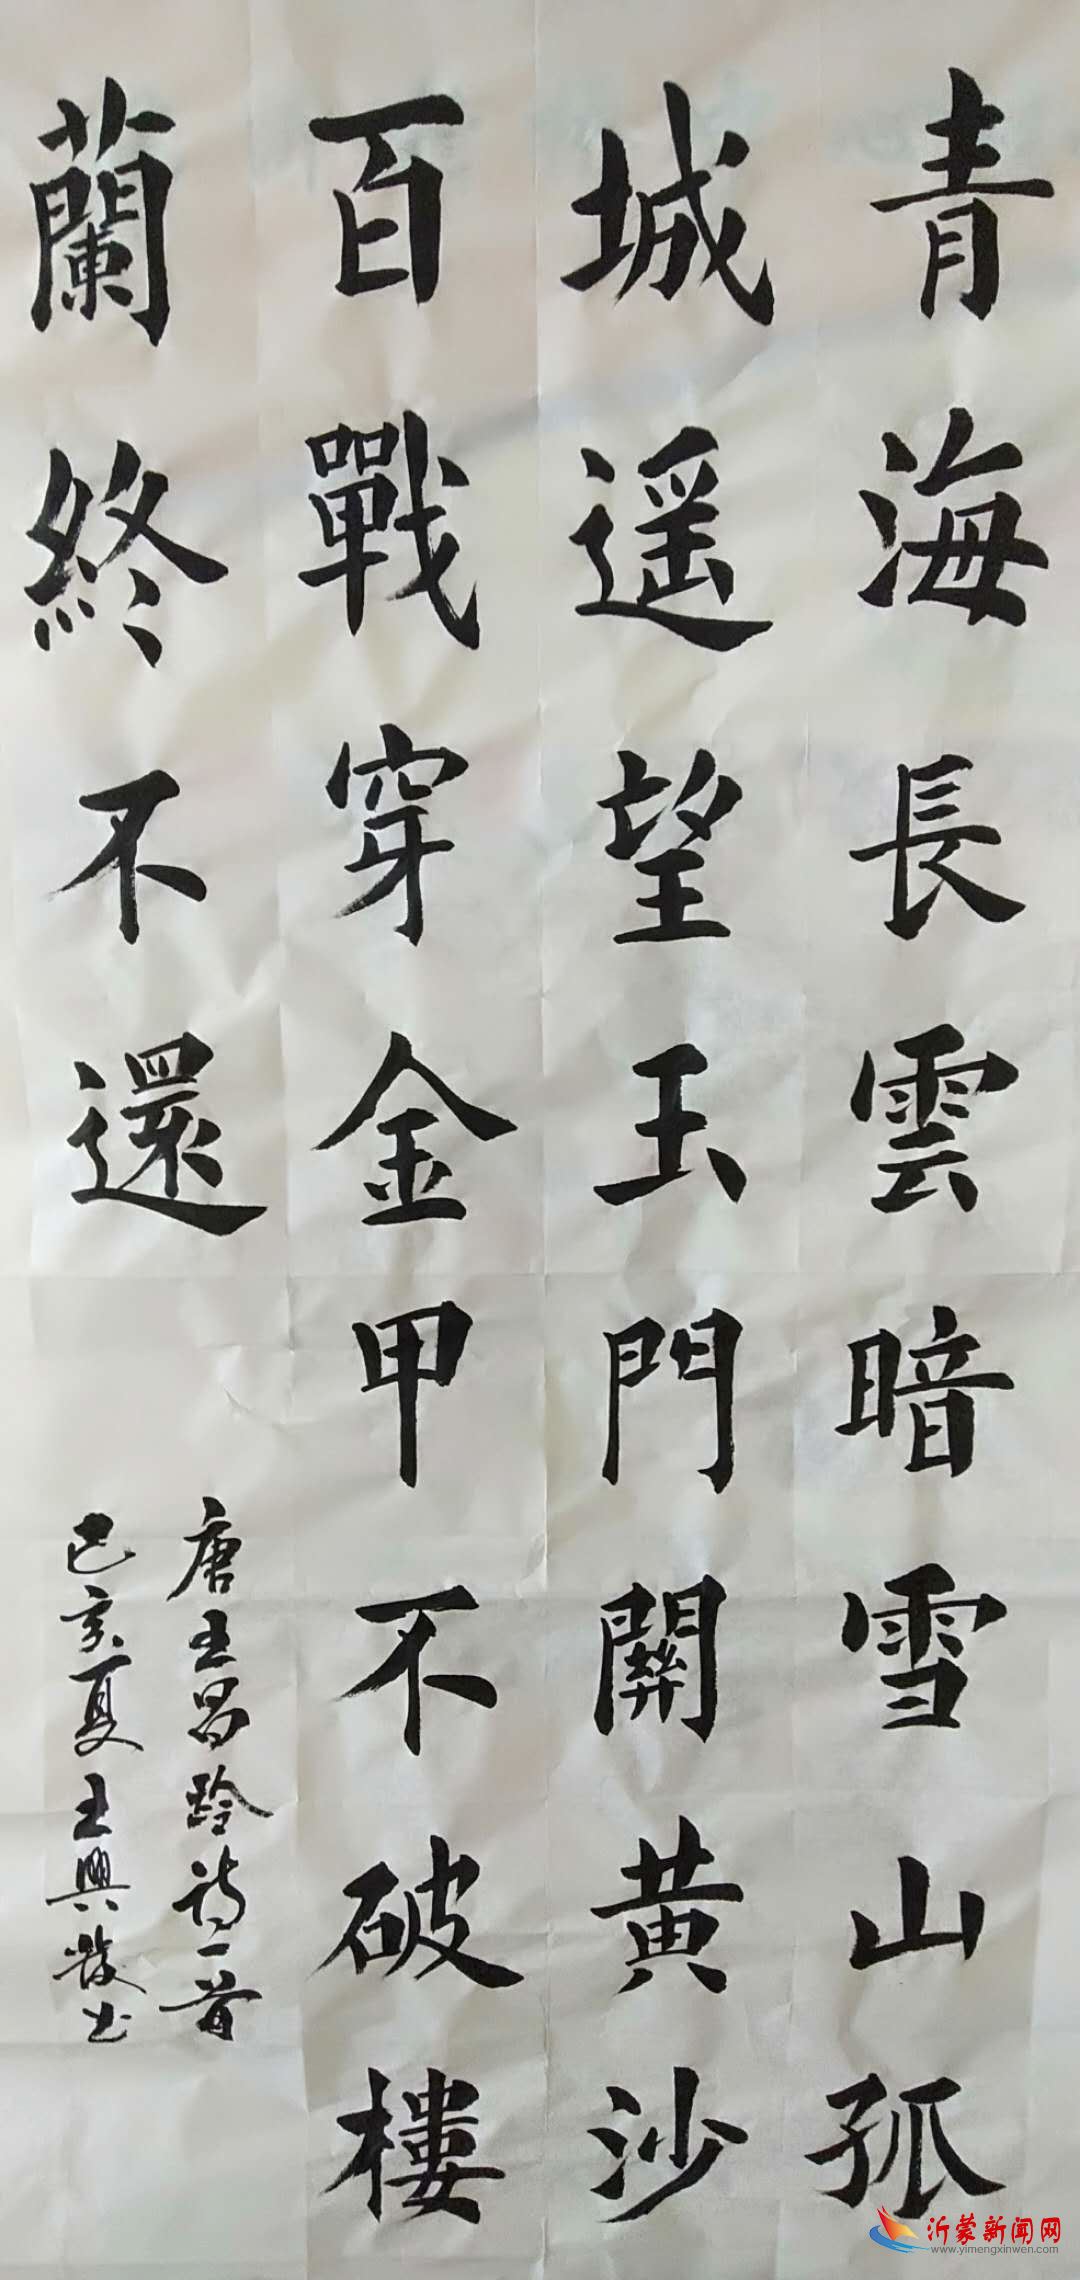 青海長雲暗雪山孤
城遥望玉門關黄沙
百戰穿金甲不破樓
蘭終不還
唐王昌龄诗一首
己亥夏王興發书
沂蒙新闻网
www.yimengxinwen.com